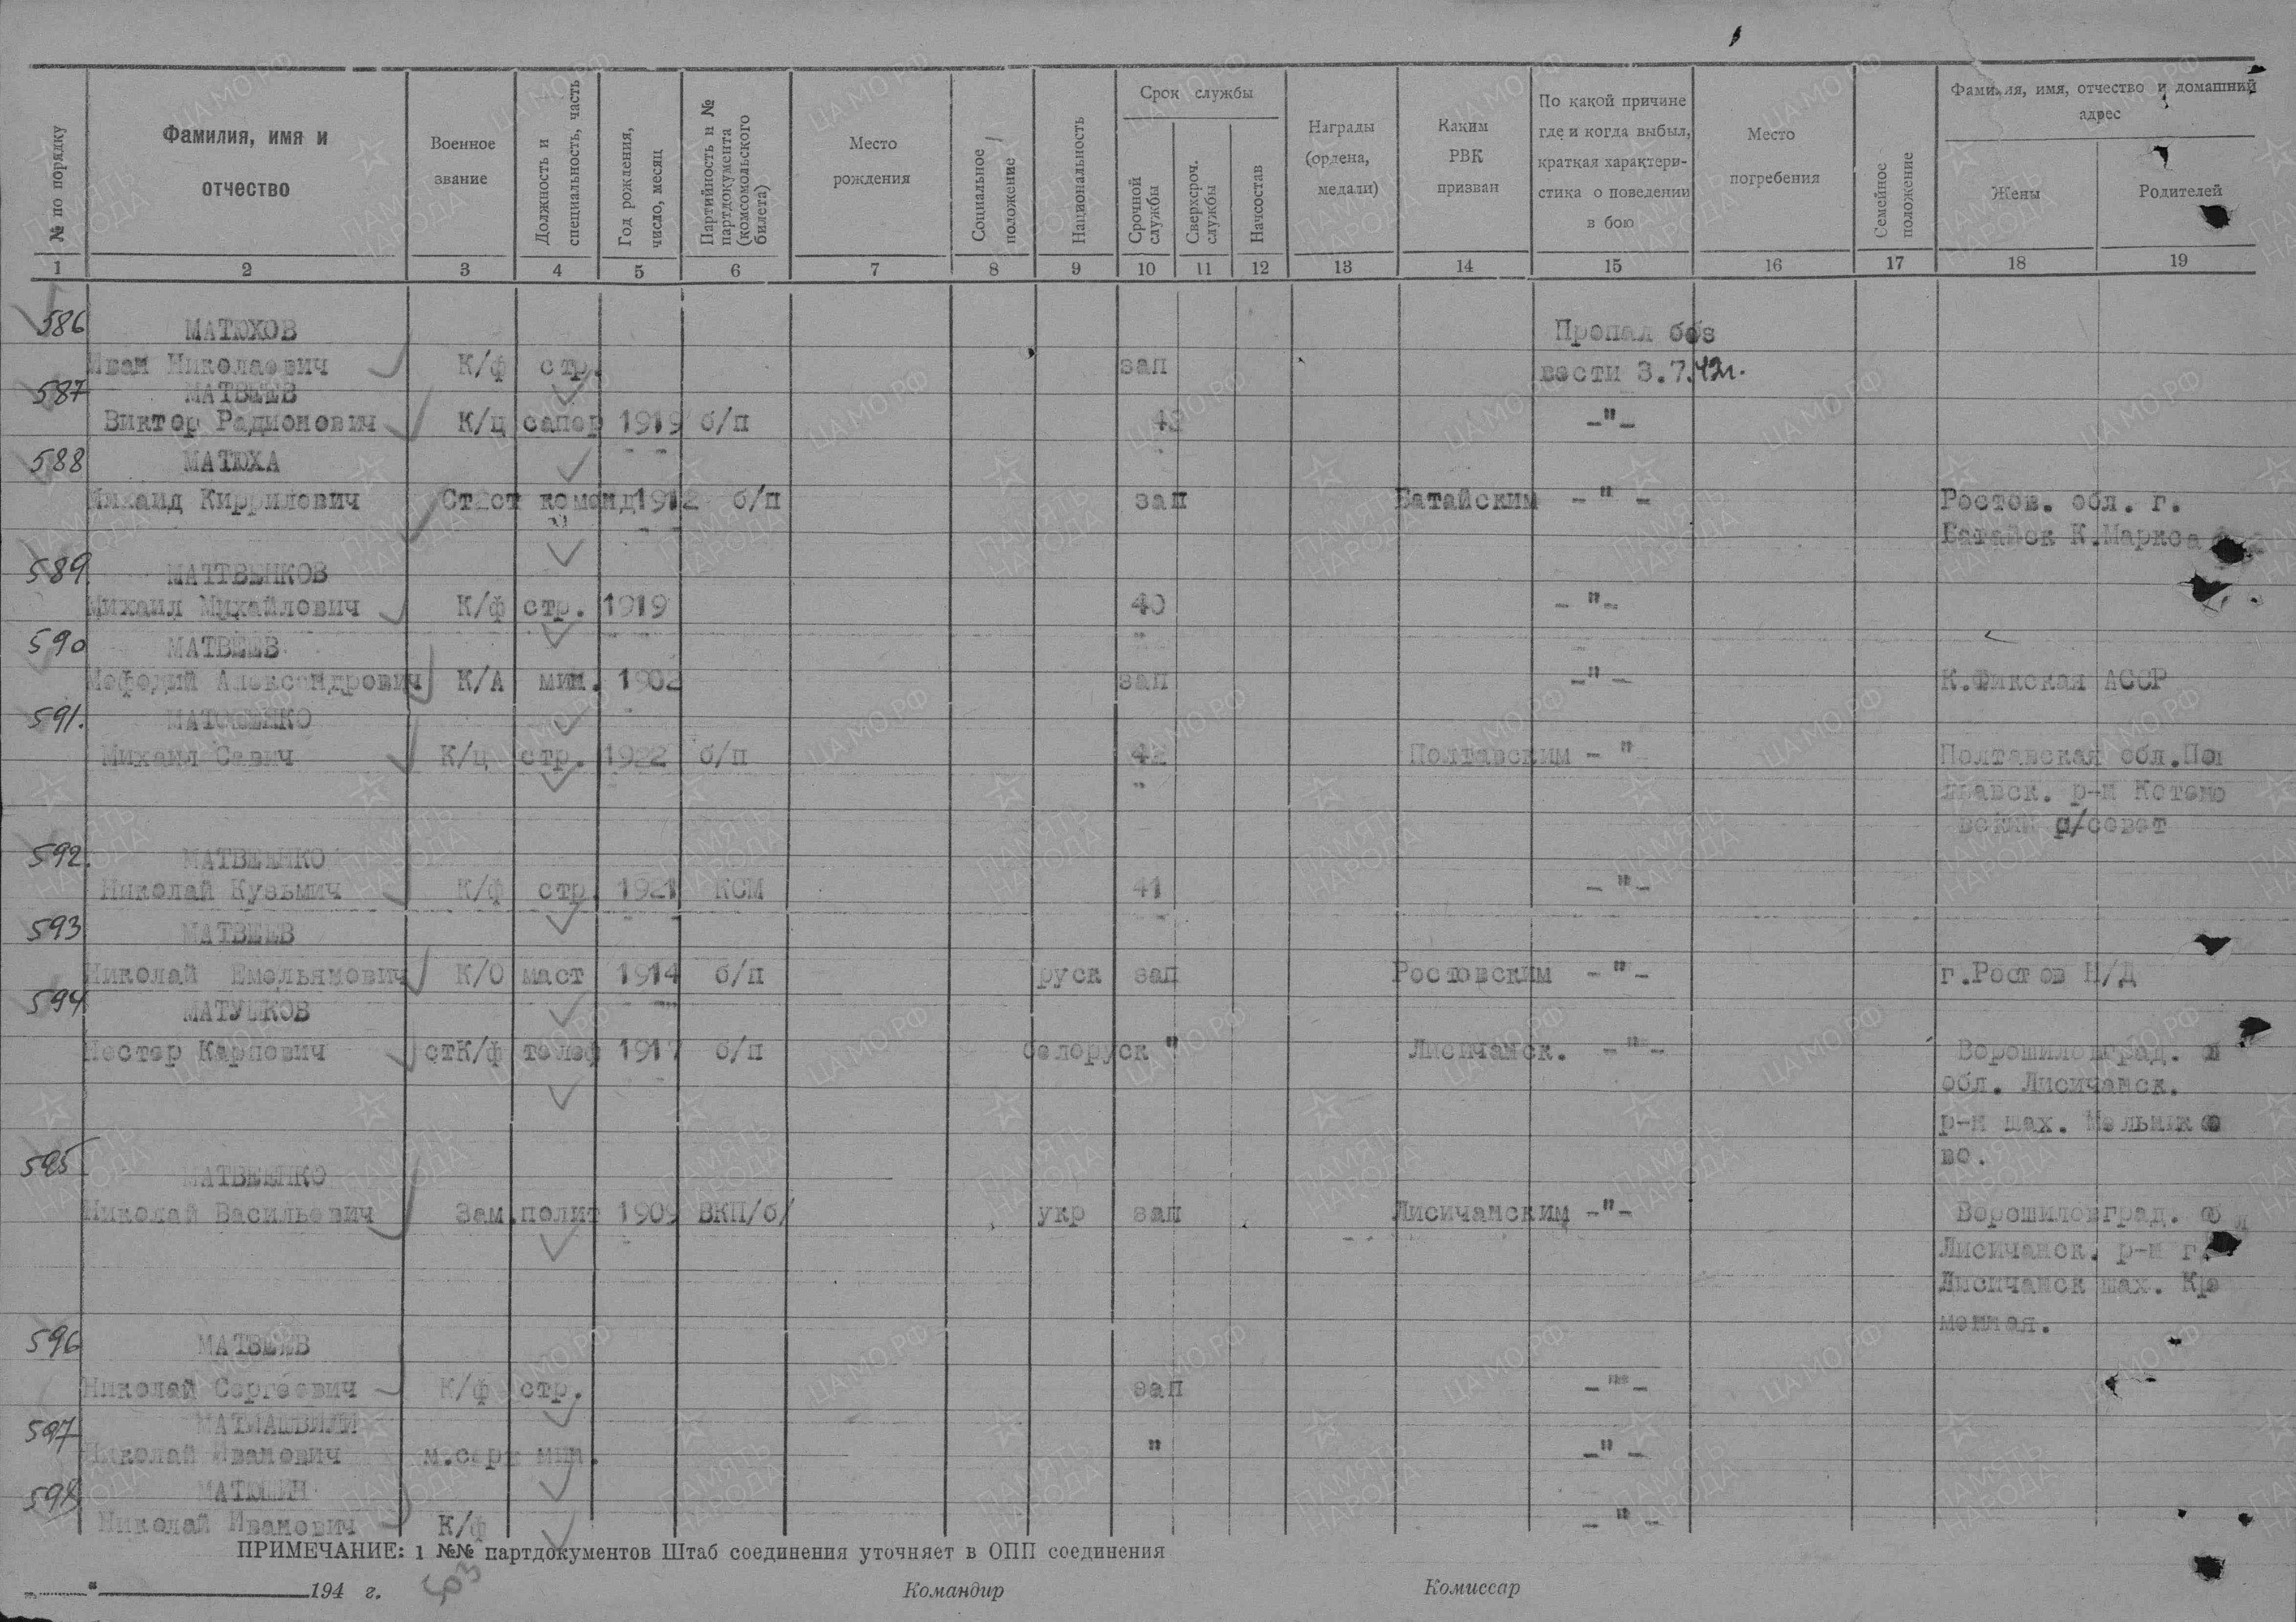 № по порядку
Фамилия, имя и отчество
Военное звание
Должность и специальность, часть
Год рождения, число, месяц
Партийность и № партдокумента (комсомольского билета)
Место рождения
Социальное положение
Национальность
Срок службы
Срочной службы
Сверхсроч. службы
Начсостав
Награды (ордена, медали)
Каким РВК призван
По какой причине где и когда выбыл, краткая характеристика о поведении в бою
Место погребения
Семейное положение
Фамилия, имя, отчество и домашний адрес
Жены
Родителей
1 2 3 4 5 6 7 8 9 10 11 12 13 14 15 16 17 18 19
586 МАТЮХОВ Пропал без
Иван Николаевич К/ф стр. зап вести 3.7.42г.
587 МАТВЕЕВ
Виктор Радионович К/ц сапер 1919 б/п 42 -"-
588 МАТЮХА
Михаил Кириллович Ст ст команд 1912 б/п зап Батайским -"- Ростов. обл. г.
Батайск К.Маркса
589. МАТТВЕНКОВ
Михаил Михайлович К/ф стр. 1919 40 -"-
590 МАТВЕЕВ
Мефодий Александрович К/А мин. 1902 зап -"- К.Финская АССР
591.
Михаил Савич К/ц стр. 1922 б/п 42 Полтавским -" Полтавская обл.Пол
тавск. р-н
с/совет
592. МАТВЕЕНКО
Николай Кузьмич К/ф стр. 1921 КСМ 41 -"-
593 МАТВЕЕВ
Николай Емельянович К/О маст 1914 б/п руск зап Ростовским -"- г.Ростов Н/Д
594 МАТУШКОВ
Нестер Карпович стК/ф телеф 1917 б/п белоруск " Лисичанск. -"- Ворошиловград.
обл. Лисичанск.
р-н шах. Мельнико
во.
595 МАТВЕЕНКО
Николай Васильевич Зам.полит 1909 ВКП/б/ укр зап Лисичанским -"- Ворошиловград. об
Лисичанск. р-н г.
Лисичанск шах. Кре
менная.
596 МАТВЕЕВ
Николай Сергеевич К/ф стр. зап -"-
597 МАТИАШВИЛИ
Николай Иванович м.серж мин. " -"-
598 МАТЮШИН
Николай Иванович К/ф -"-
ПРИМЕЧАНИЕ: 1 №№ партдокументов Штаб соединения уточняет в ОПП соединения
503
"194 г. Командир Комиссар
ПАМЯТЬ НАРОДА
ЦА МО РФ